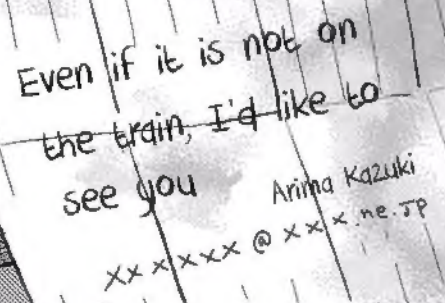 Even if it is not on
the train, I'd like to
see you
Arima Kazuki
xxxxxx@xxx.ne.jp